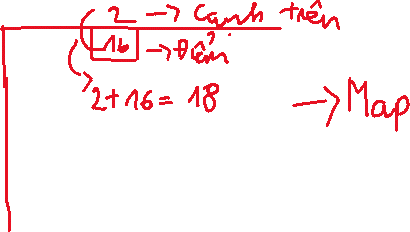 2 → Cạnh trên
16 → Điểm
2+16=18 → Map